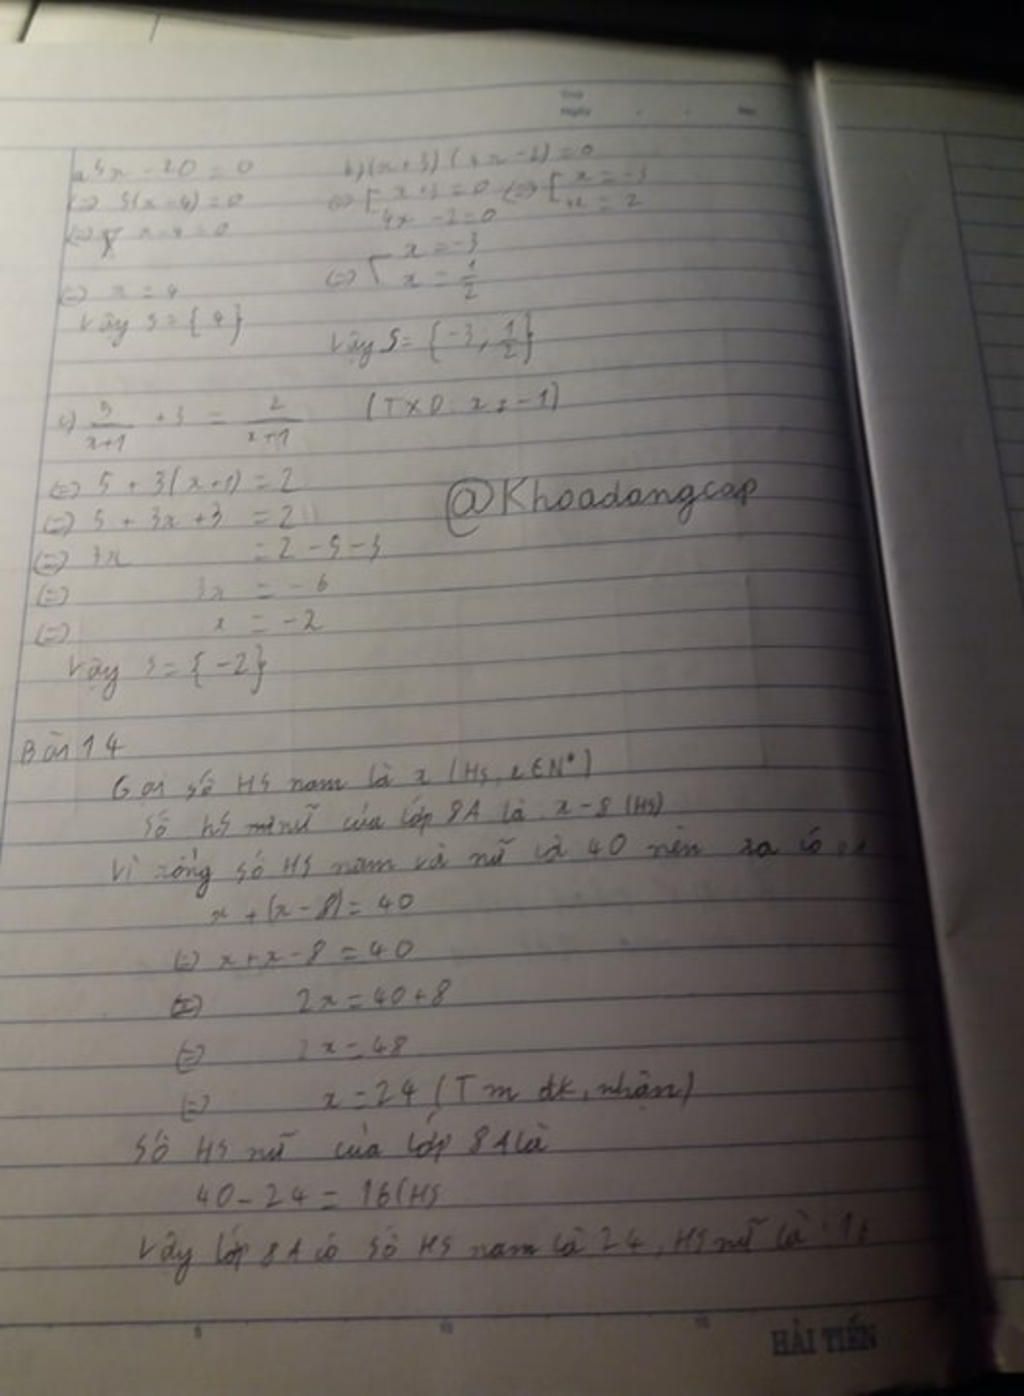 Thứ
Ngày No.
a 5x - 20 = 0
(=) 5(x-4)=0
(=) x-4=0
(=) x = 4
Vậy S={4}
b)(x+3)(4x-2)=0
(=) [ x+3=0 (=) [ x=-3
4x-2=0 4x=2
(=) [ x=-3
x=1/2
Vậy S={-3, 1/2}
c) 5/x+1 +3 = 2/x+1 (TXD: x ≠ -1)
(=) 5 + 3(x+1) = 2
(=) 5 + 3x + 3 = 2
(=) 3x = 2-5-3
(=) 3x = -6
(=) x = -2
Vậy S={-2}
@Khoadangcap
Bài 14
Gọi số HS nam là x (HS, x ∈ N*)
Số hS nữ của lớp 8A là x-8 (HS)
Vì tổng số HS nam và nữ là 40 nên ta có
x + (x-8)=40
(=) x+x-8=40
(=) 2x=40+8
(=) 2x=48
(=) x=24 (Tm đk, nhận)
Số HS nữ của lớp 8A là
40-24 = 16(HS
Vậy lớp 8A có số HS nam là 24, HS nữ là
5 10 15
HẢI TIẾN